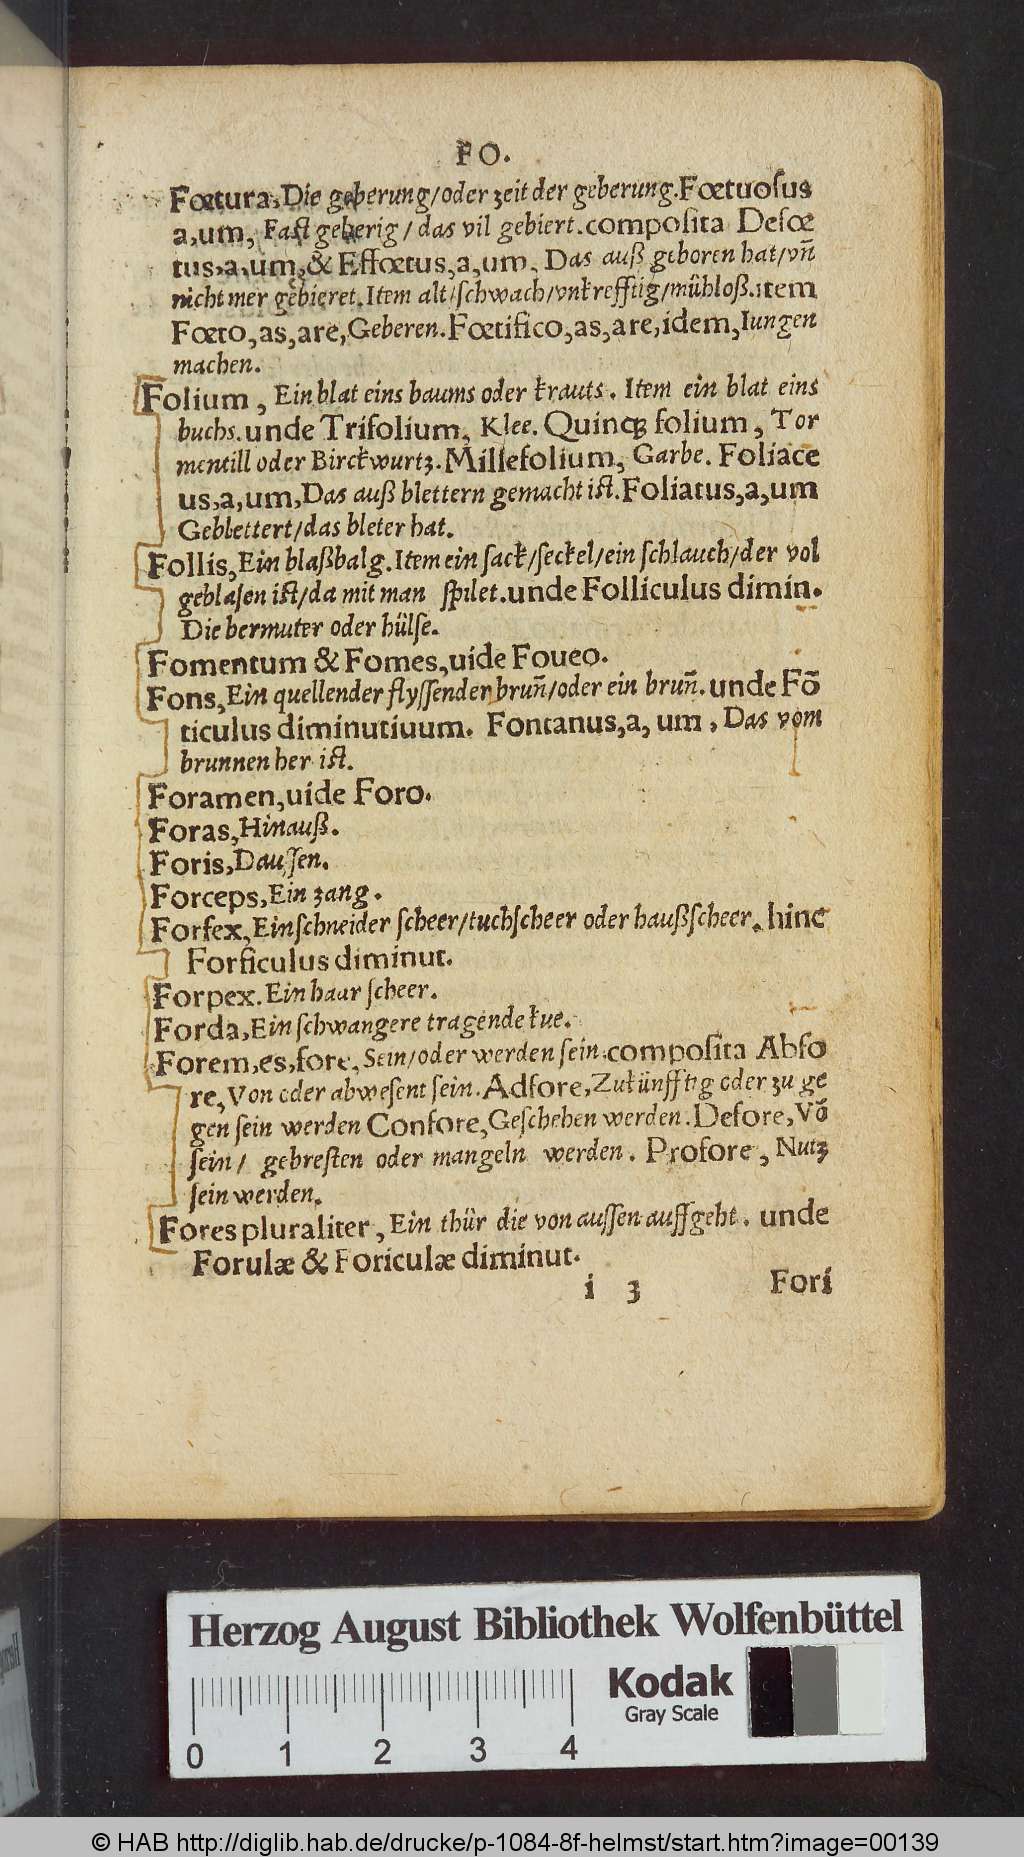 FO.
Fœtura, Die geberung/oder zeit der geberung. Fœtuosus
a, um, Fast geberig/das vil gebiert. composita Defœ
tus, a, um, & Effœtus, a, um, Das auß geboren hat/vñ
nicht mer gebieret. Item alt/schwach/vnkrefftig/mühloß. item
Fœto, as, are, Geberen. Fœtifico, as, are, idem, Iungen
machen.
Folium, Ein blat eins baums oder krauts. Item ein blat eins
buchs. unde Trifolium, Klee. Quinqꝫ folium, Tor
mentill oder Birckwurtz. Millefolium, Garbe. Foliace
us, a, um, Das auß blettern gemacht ist. Foliatus, a, um
Geblettert/das bleter hat.
Follis, Ein blaßbalg. Item ein sack/seckel/ein schlauch/der vol
geblasen ist/da mit man spilet. unde Folliculus dimin.
Die bermuter oder hülse.
Fomentum & Fomes, uide Foueo.
Fons, Ein quellender flyssender bruñ/oder ein bruñ. unde Fõ
ticulus diminutiuum. Fontanus, a, um, Das vom
brunnen her ist.
Foramen, uide Foro.
Foras, Hinauß.
Foris, Daussen.
Forceps, Ein zang.
Forfex, Ein schneider scheer/tuchscheer oder haußscheer. hinc
Forficulus diminut.
Forpex. Ein haar scheer.
Forda, Ein schwangere tragende kue.
Forem, es, fore, Sein/oder werden sein. composita Abfo
re, Von oder abwesent sein. Adfore, Zukünfftig oder zu ge
gen sein werden Confore, Geschehen werden. Defore, Võ
sein/ gebresten oder mangeln werden. Profore, Nutz
sein werden.
Fores pluraliter, Ein thür die von aussen auffgeht. unde
Forulæ & Foriculæ diminut.
i 3 Fori
Herzog August Bibliothek Wolfenbüttel
Kodak
Gray Scale
0 1 2 3 4
© HAB http://diglib.hab.de/drucke/p-1084-8f-helmst/start.htm?image=00139